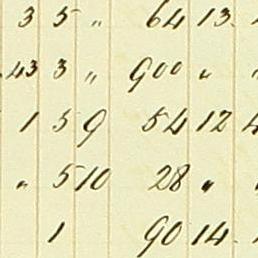 3 5 " 64 13
43 3 " 900 "
1 5 9 54 12 4
" 5 10 28 "
1 90 14